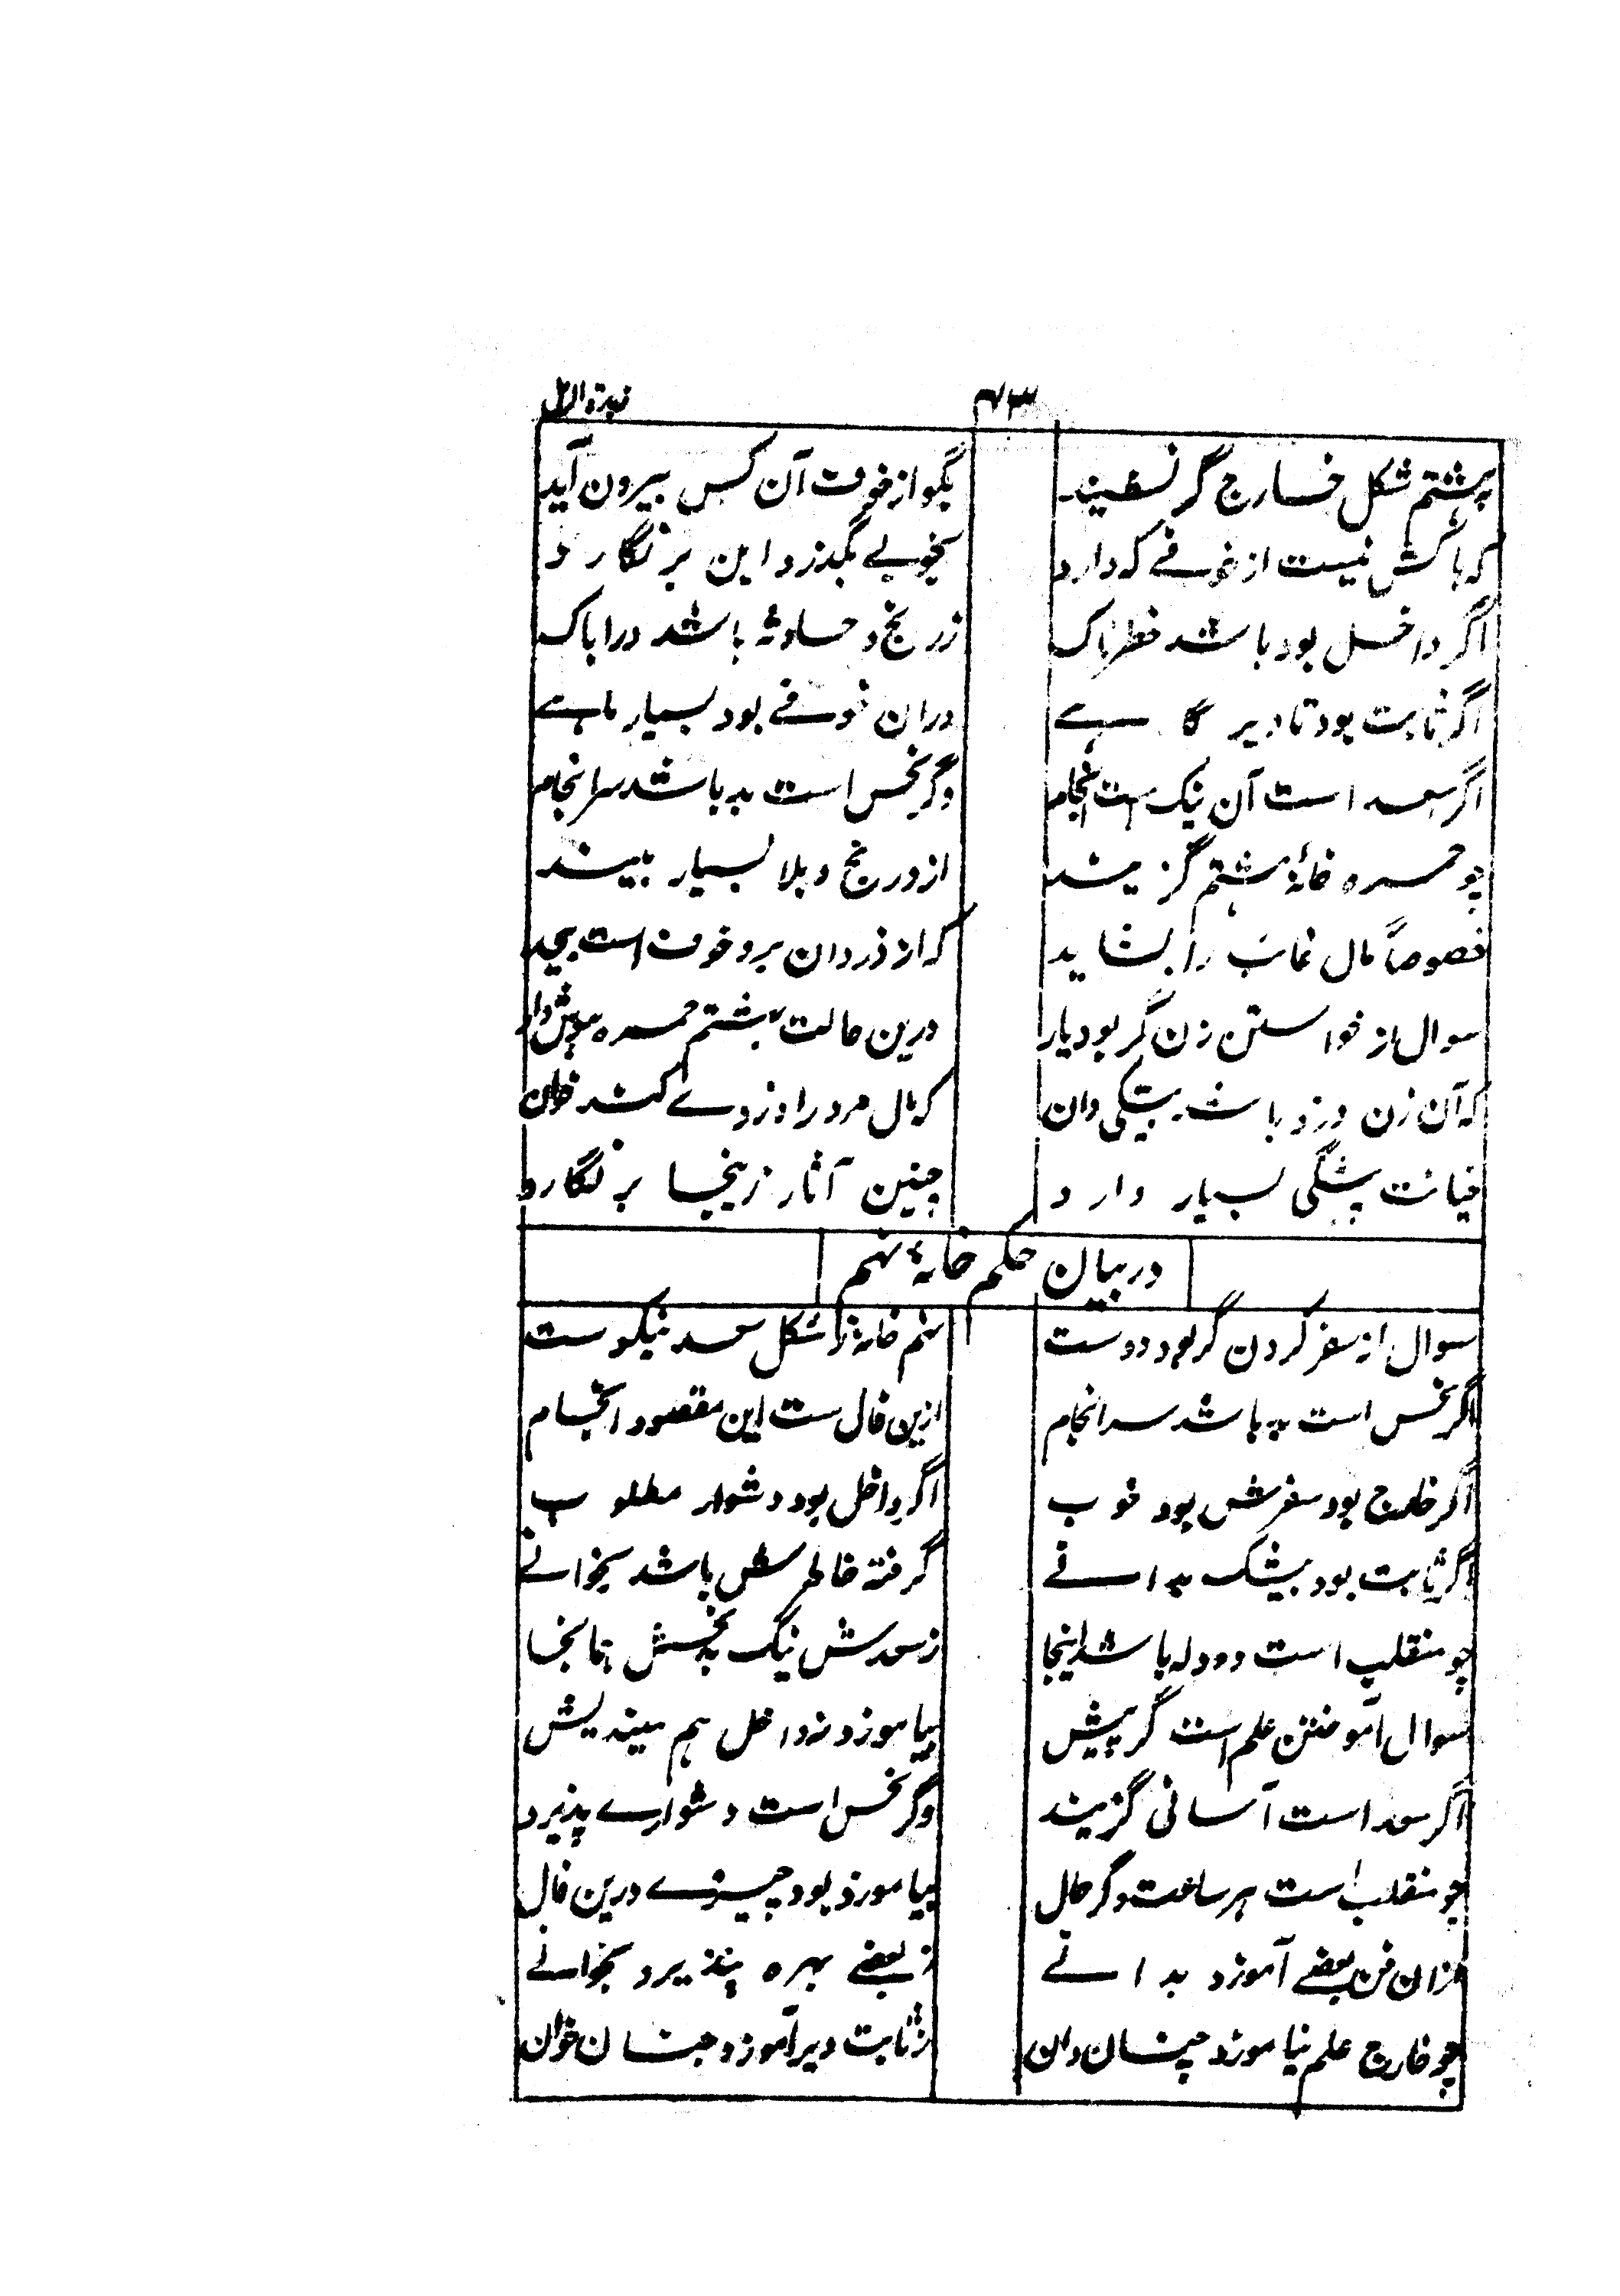 ۴۳ زبدة الرمل
بهشتم شکل خارج گر نشیند بگو از خوف آن کس بیرون آید
که باکش نیست از خوفے که دارد بخوبے بگذرد این بر نگارد
اگر داخل بود باشد خطرناک ز رنج و حادثه باشد ورا باک
اگر ثابت بود تا دیر گاہے دران خوفے بود بسیار ماہے
اگر سعد است آن نیک است انجام وگر نحس است بد باشد سرانجام
چو حمره خانهٔ هشتم گزیند ازو رنج و بلا بسیار بیند
خصوصاً مال غائب را بشاید که از دزدان برو خوف است بیحد
سوال از خواستن زن گر بود یار درین حالت بهشتم حمره هوش دار
که آن زن دزد باشد بیشکی دان که مال مرد را دزدے کند خوان
خیانت پیشگی بسیار دارد چنین آثار زینجا بر نگارد
در بیان حکم خانهٔ نهم
سوال از سفر کردن گر بود دوست نهم خانه را شکل سعد نیکوست
اگر نحس است بد باشد سرانجام ازین فال ست این مقصود انجام
اگر خارج بود سفرش بود خوب اگر داخل بود دشوار مطلوب
اگر ثابت بود بیشک بدانے گرفته خاطرش باشد بخوانے
چو منقلب است دو دله باشد اینجا ز سعدش نیک بد نحسش بما نجا
سوال آموختن علم است گر پیش بیاموزد ز داخل هم میندیش
اگر سعد است آسانی گزیند وگر نحس است دشوارے پذیرد
چو منقلب است هر ساعت دگر حال بیاموزد بود چیزے درین فال
ازان فن بعضے آموزد بدانے ز بعضے بهره پذیرد بخوانے
چو خارج علم نیاموزد چنان دان ز ثابت دیر آموزد چنان خوان